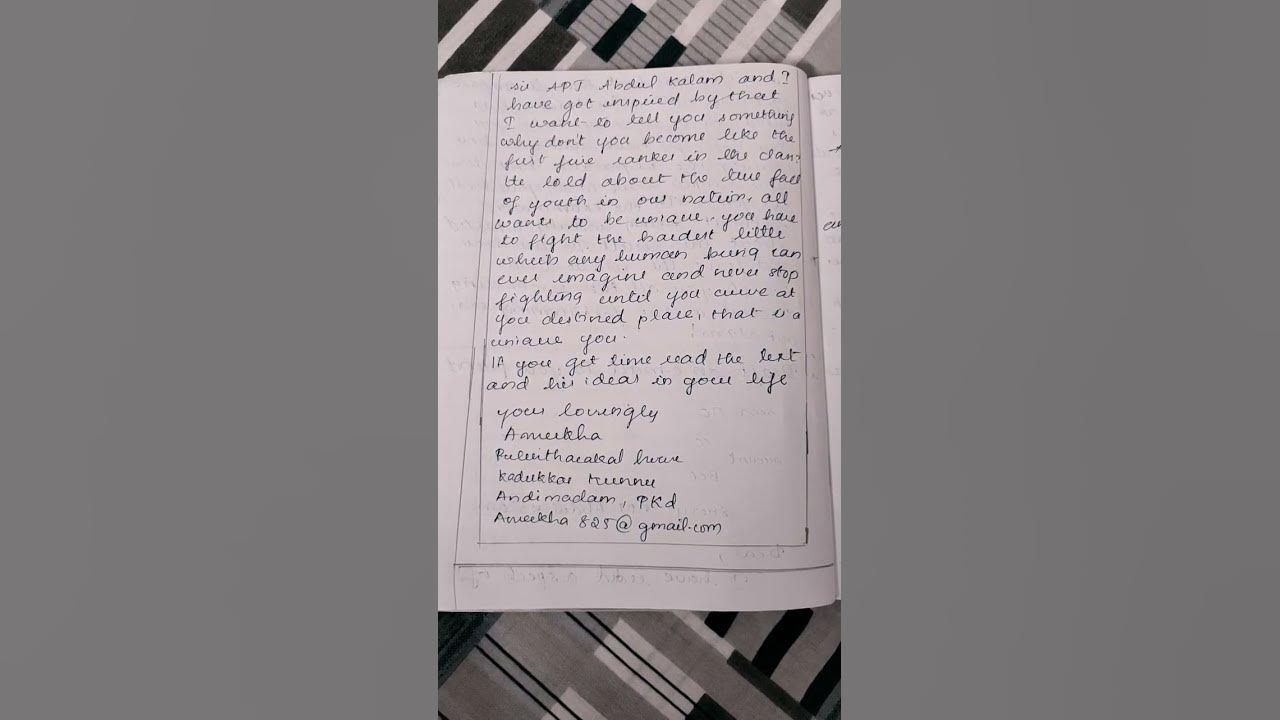 sir APJ Abdul Kalam and I
have got inspired by that
I want to tell you something
why don't you become like the
first five ranker in the class
He told about the true face
of youth in our nation, all
wants to be unique. you have
to fight the hardest little
which any human being can
ever imagine and never stop
fighting until you arrive at
you destined place, that is a
unique you.
If you get time read the text
and his ideas in your life
your lovingly
Ameekha
house
Kadukkas Kunnu
Andimadam, PKd
Ameekha 825@gmail.com
Dear,